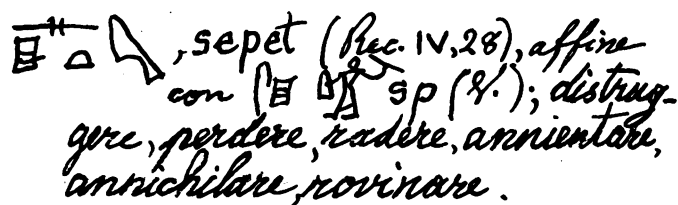 , sepet (Rec. IV, 28), affine
con sp (V.); distrug-
gere, perdere, radere, annientare,
annichilare, rovinare.